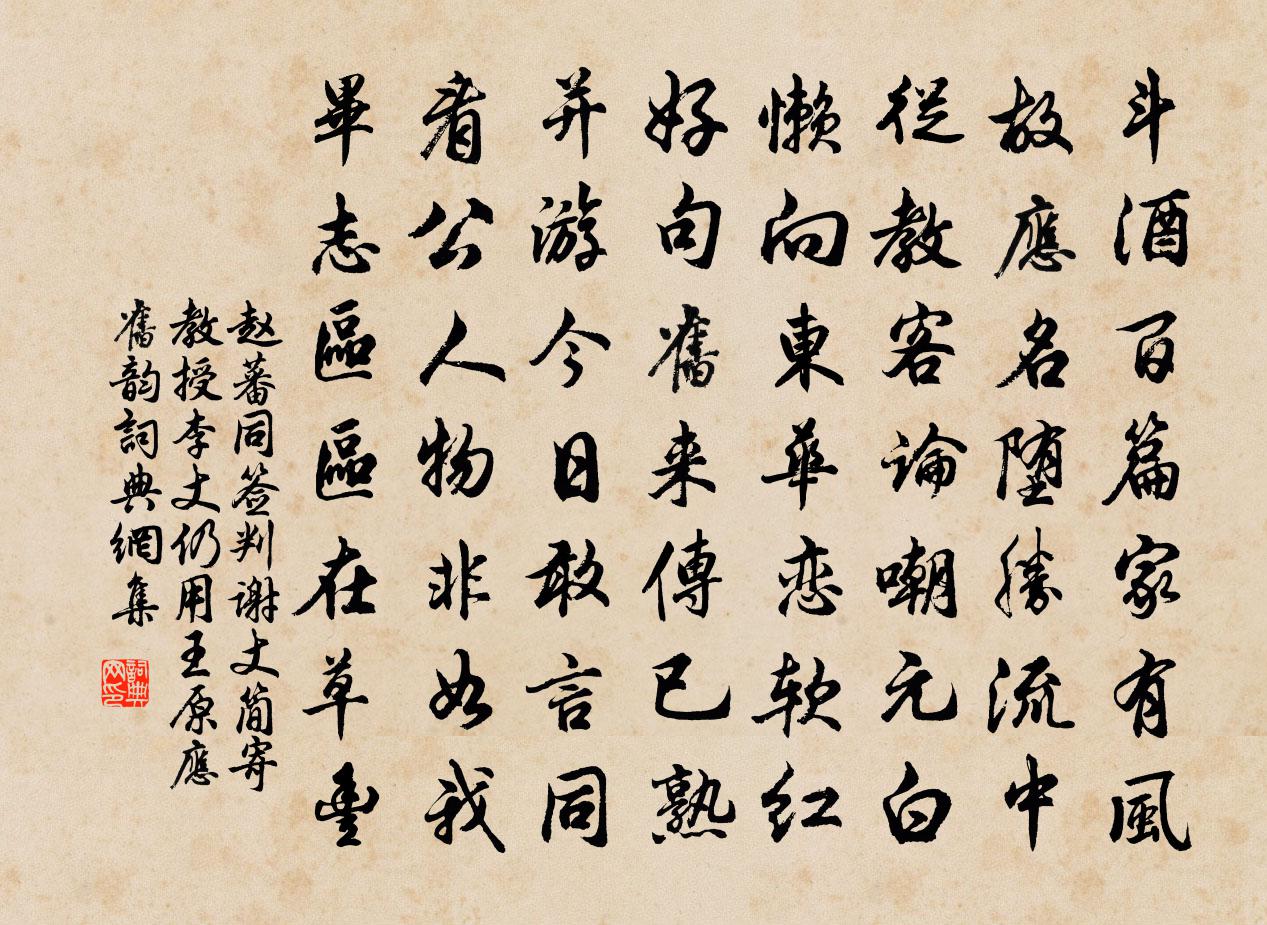 斗酒百篇家有風
故應名堕勝流中
從教客論嘲元白
懶向東華恋软红
好句舊来傳已熟
并游今日敢言同
看公人物非如我
畢志區區在草豊
赵蕃同签判谢丈简寄
教授李丈仍用王原應
舊韵詞典網集
詞典网印